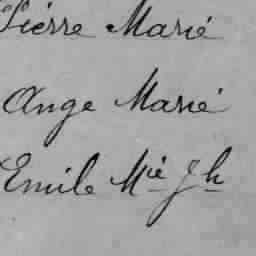 Pierre Marié
Ange Marié
Emile Mié Jh